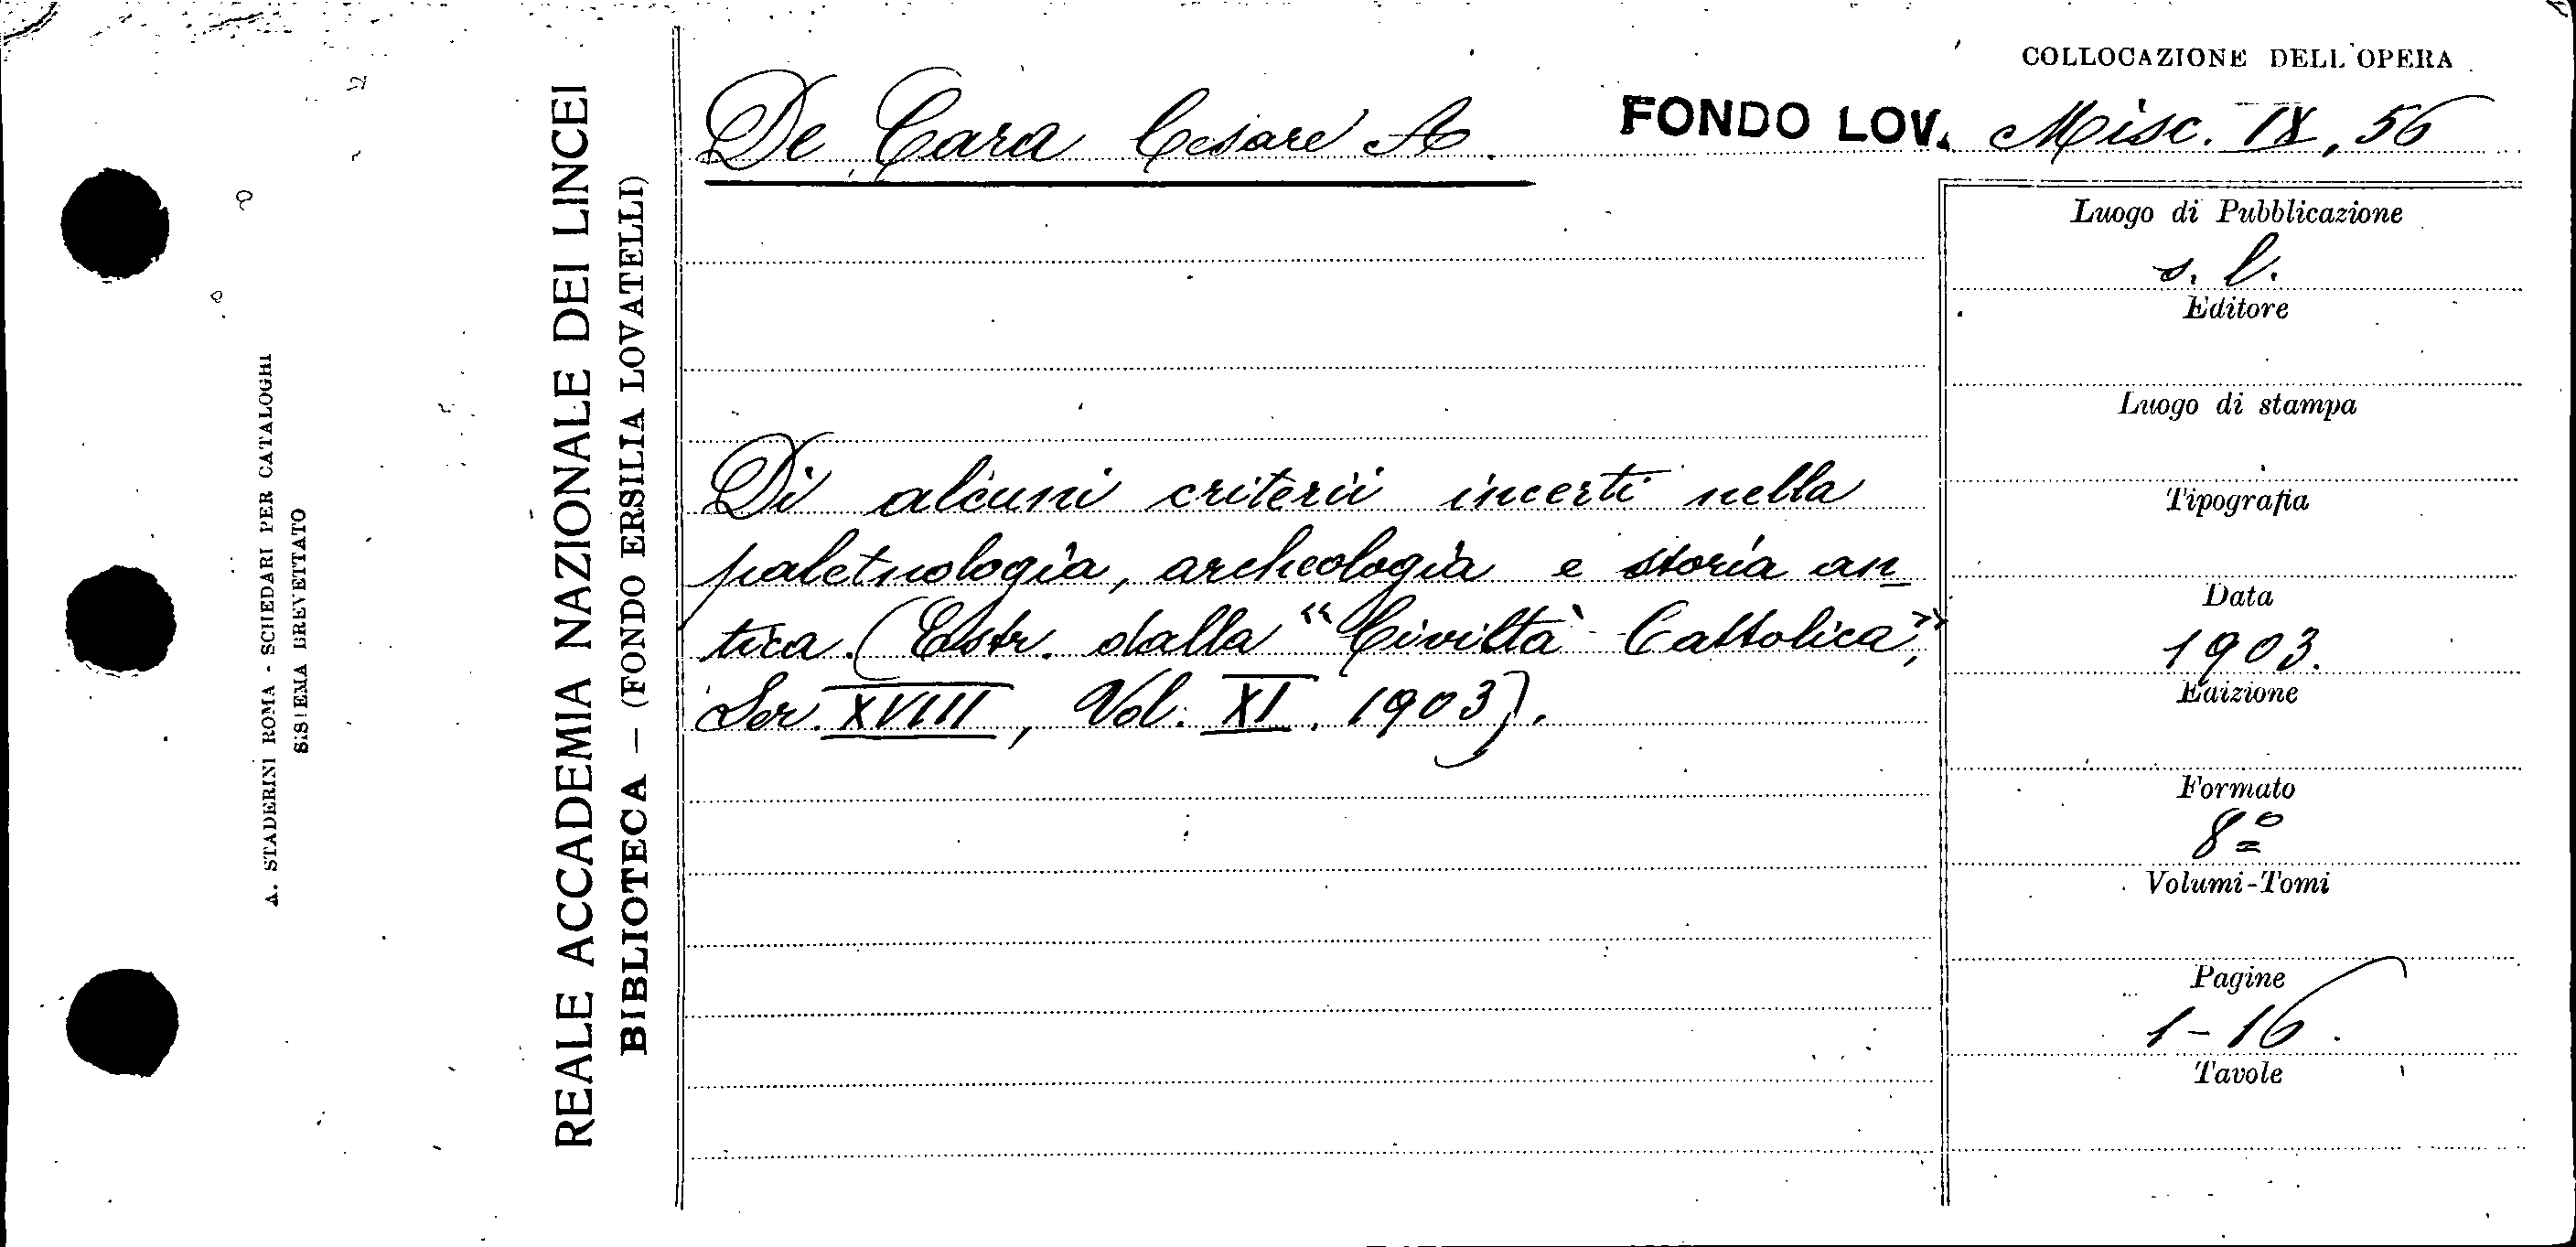 COLLOCAZIONE DELL'OPERA
De Cara Cesare A. FONDO LOV. Misc. IX, 56
Di alcuni criterii incerti nella
paletnologia, archeologia e storia an
tica. (Estr. dalla "Civiltà Cattolica",
Ser. XVIII, Vol. XI. 1903).
Luogo di Pubblicazione
s. l.
Editore
Luogo di stampa
Tipografia
Data
1903.
Edizione
Formato
8º
Volumi-Tomi
Pagine
1-16.
Tavole
REALE ACCADEMIA NAZIONALE DEI LINCEI
BIBLIOTECA — (FONDO ERSILIA LOVATELLI)
A. STADERINI ROMA - SCHEDARI PER CATALOGHI
SISTEMA BREVETTATO